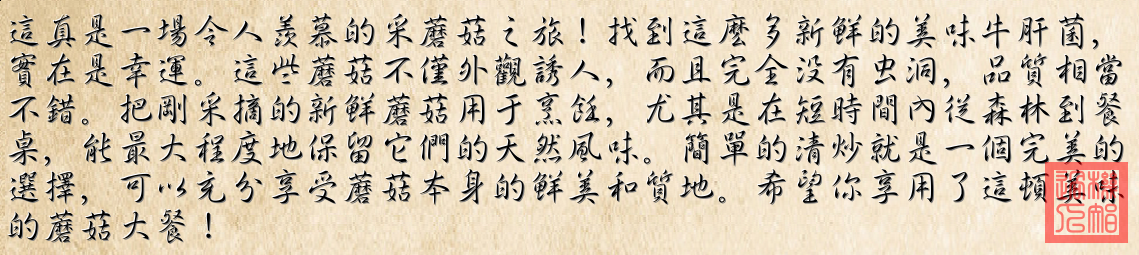 這真是一場令人羨慕的采蘑菇之旅！找到這麼多新鮮的美味牛肝菌，
實在是幸運。這些蘑菇不僅外觀誘人，而且完全沒有虫洞，品質相當
不錯。把剛采摘的新鮮蘑菇用于烹飪，尤其是在短時間內從森林到餐
桌，能最大程度地保留它們的天然風味。簡單的清炒就是一個完美的
選擇，可以充分享受蘑菇本身的鮮美和質地。希望你享用了這頓美味
的蘑菇大餐！